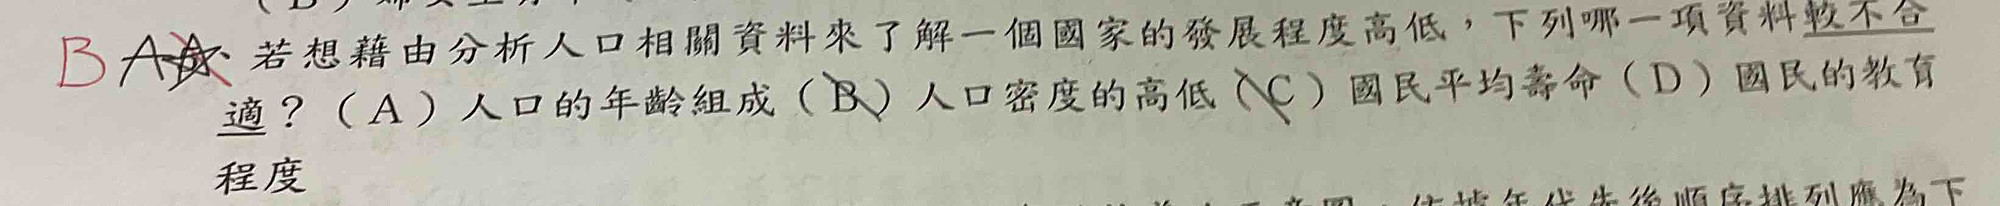 B A 若想藉由分析人口相關資料來了解一個國家的發展程度高低，下列哪一項資料較不合
適？（A）人口的年齡組成（B）人口密度的高低（C）國民平均壽命（D）國民的教育
程度
依據年代先後順序排列應為下